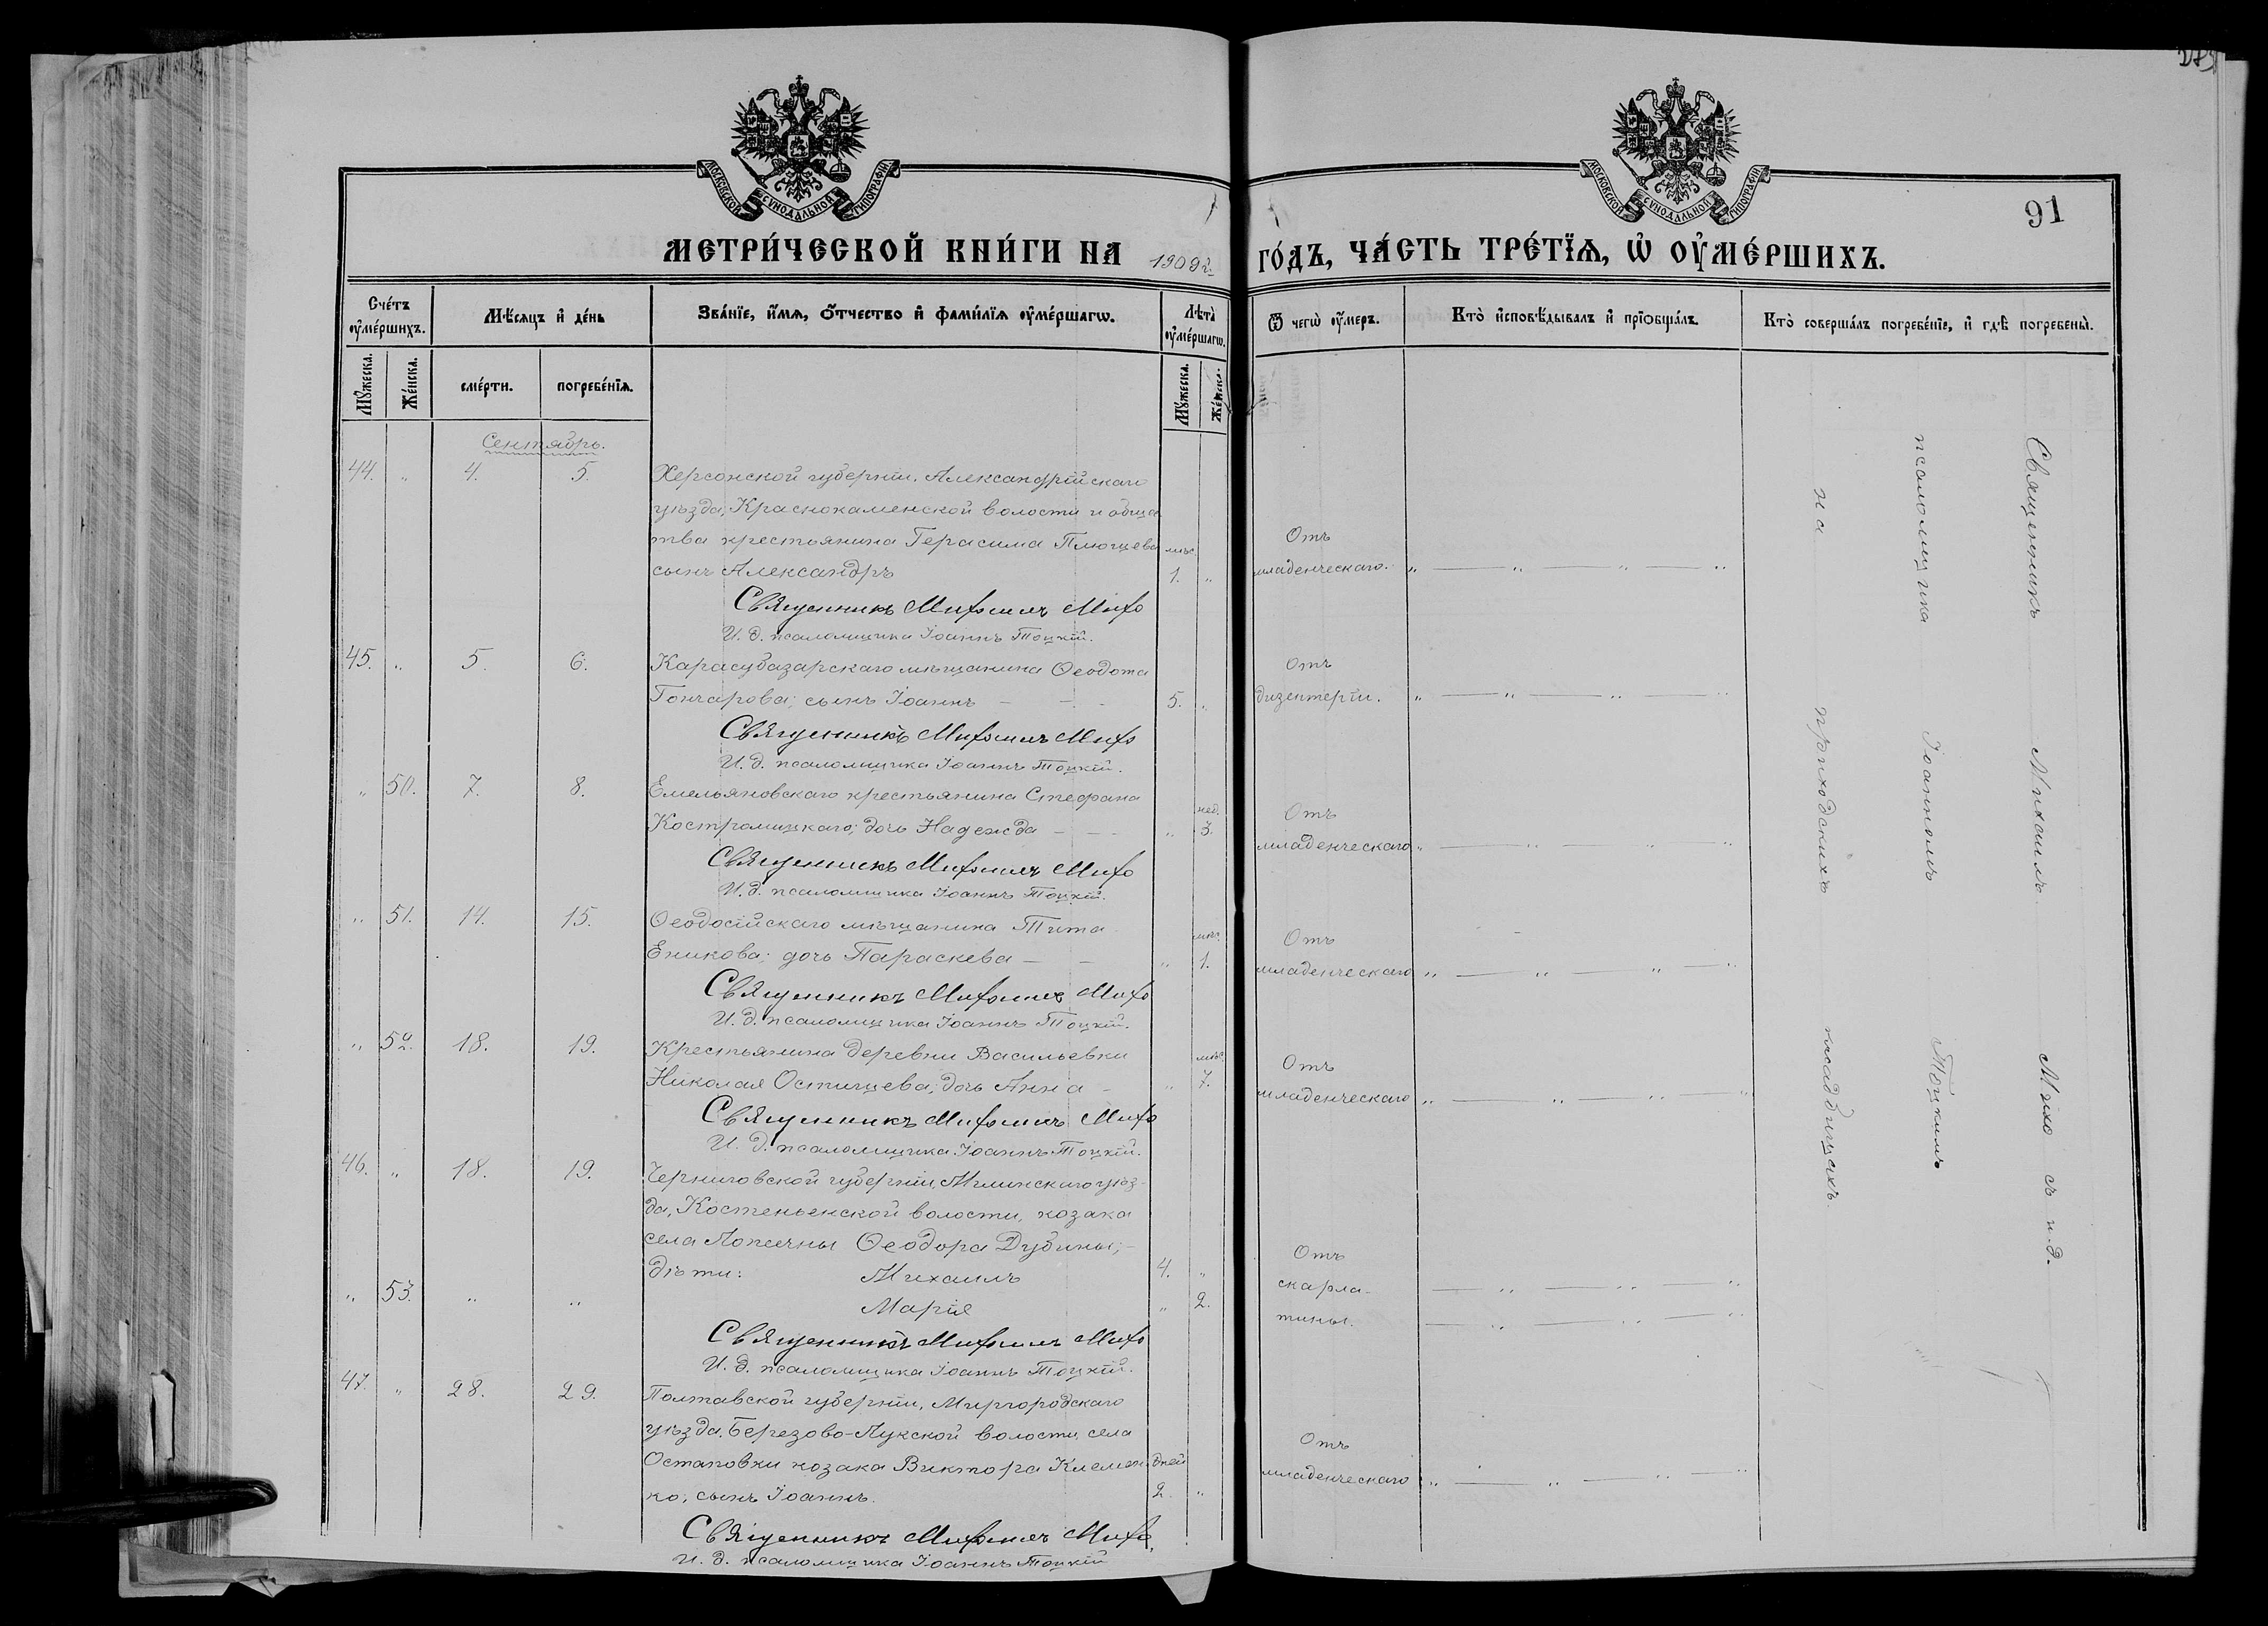 МОСКОВСКОЙ СУНОДАЛЬНОЙ ТИПОГРАФІИ
МЕТРИ́ЧЕСКОЙ КНИ́ГИ НА 1909 г.
Сче́тъ ᲂу҆ме́ршихъ.
Мѣ́сяцъ и҆ де́нь
Зва́нїе, и҆́мѧ, ѻ҆́тчество и҆ фами́лїѧ ᲂу҆ме́ршагѡ.
Лѣта̀ ᲂу҆ме́ршагѡ.
Мꙋ́жеска.
Же́нска.
сме́рти.
погребе́нїѧ.
Мꙋ́жеска.
Же́нска.
Сентябрь.
44. " 4. 5. Херсонской губерніи, Александрійскаго
уѣзда, Краснокаменской волости и общес
тва крестьянина Герасима Плющева мѣс.
сынъ Александръ 1. "
Священникъ Михаилъ Михо
И. д. псаломщика Іоаннъ Тоцкій.
45. " 5. 6. Карасубазарскаго мѣщанина Ѳеодота
Гончарова; сынъ Іоаннъ — — - 5. "
Священникъ Михаилъ Михо
И. д. псаломщика Іоаннъ Тоцкій.
" 50. 7. 8. Емельяновскаго крестьянина Стефана нед.
Костромицкаго; дочь Надежда — — " 3.
Священникъ Михаилъ Михо
И. д. псаломщика Іоаннъ Тоцкій.
" 51. 14. 15. Ѳеодосійскаго мѣщанина Тита мѣс.
Еникова; дочь Параскева — — " 1.
Священникъ Михаилъ Михо
И. д. псаломщика Іоаннъ Тоцкій.
" 52. 18. 19. Крестьянина деревни Васильевки мѣс.
Николая Остищева; дочь Анна - " 7.
Священникъ Михаилъ Михо
И. д. псаломщика Іоаннъ Тоцкій.
46. " 18. 19. Черниговской губерніи, Мглинскаго уѣз-
да, Костеньенской волости, козака
села Ѳеодора Дубины; —
дѣти: Михаилъ 4. "
" 53. " " Марія " 2.
Священникъ Михаилъ Михо
И. д. псаломщика Іоаннъ Тоцкій.
47. " 28. 29. Полтавской губерніи, Миргородскаго
уѣзда, Березово-Лукской волости, села
Остаповки козака Виктора Клемен дней
ко; сынъ Іоаннъ. 2. "
Священникъ Михаилъ Михо,
И. д. псаломщика Іоаннъ Тоцкій
МОСКОВСКОЙ СУНОДАЛЬНОЙ ТИПОГРАФІИ
91
ГО́ДЪ, ЧА́СТЬ ТРЕ́ТЇѦ, Ѡ҆ ОУ҆МЕ́РШИХЪ.
Ѿ чегѡ̀ ᲂу҆́меръ.
Кто̀ и҆сповѣ́дывалъ и҆ прїѡбща́лъ.
Кто̀ соверша́лъ погребе́нїе, и҆ гдѣ̀ погребены̀.
Отъ
младенческаго. " — " — " — "
Отъ
дизентеріи. " — " — " — "
Отъ
младенческаго " — " — " — "
Отъ
младенческаго " — " — " — "
Отъ
младенческаго " — " — " — "
Отъ
скарла- — " — " — "
тины. — " — " — "
Отъ
младенческаго " — " — " — "
Священникъ Михаилъ Михо съ и. д.
псаломщика Іоанномъ Тоцкимъ
на приходскихъ кладбищахъ.